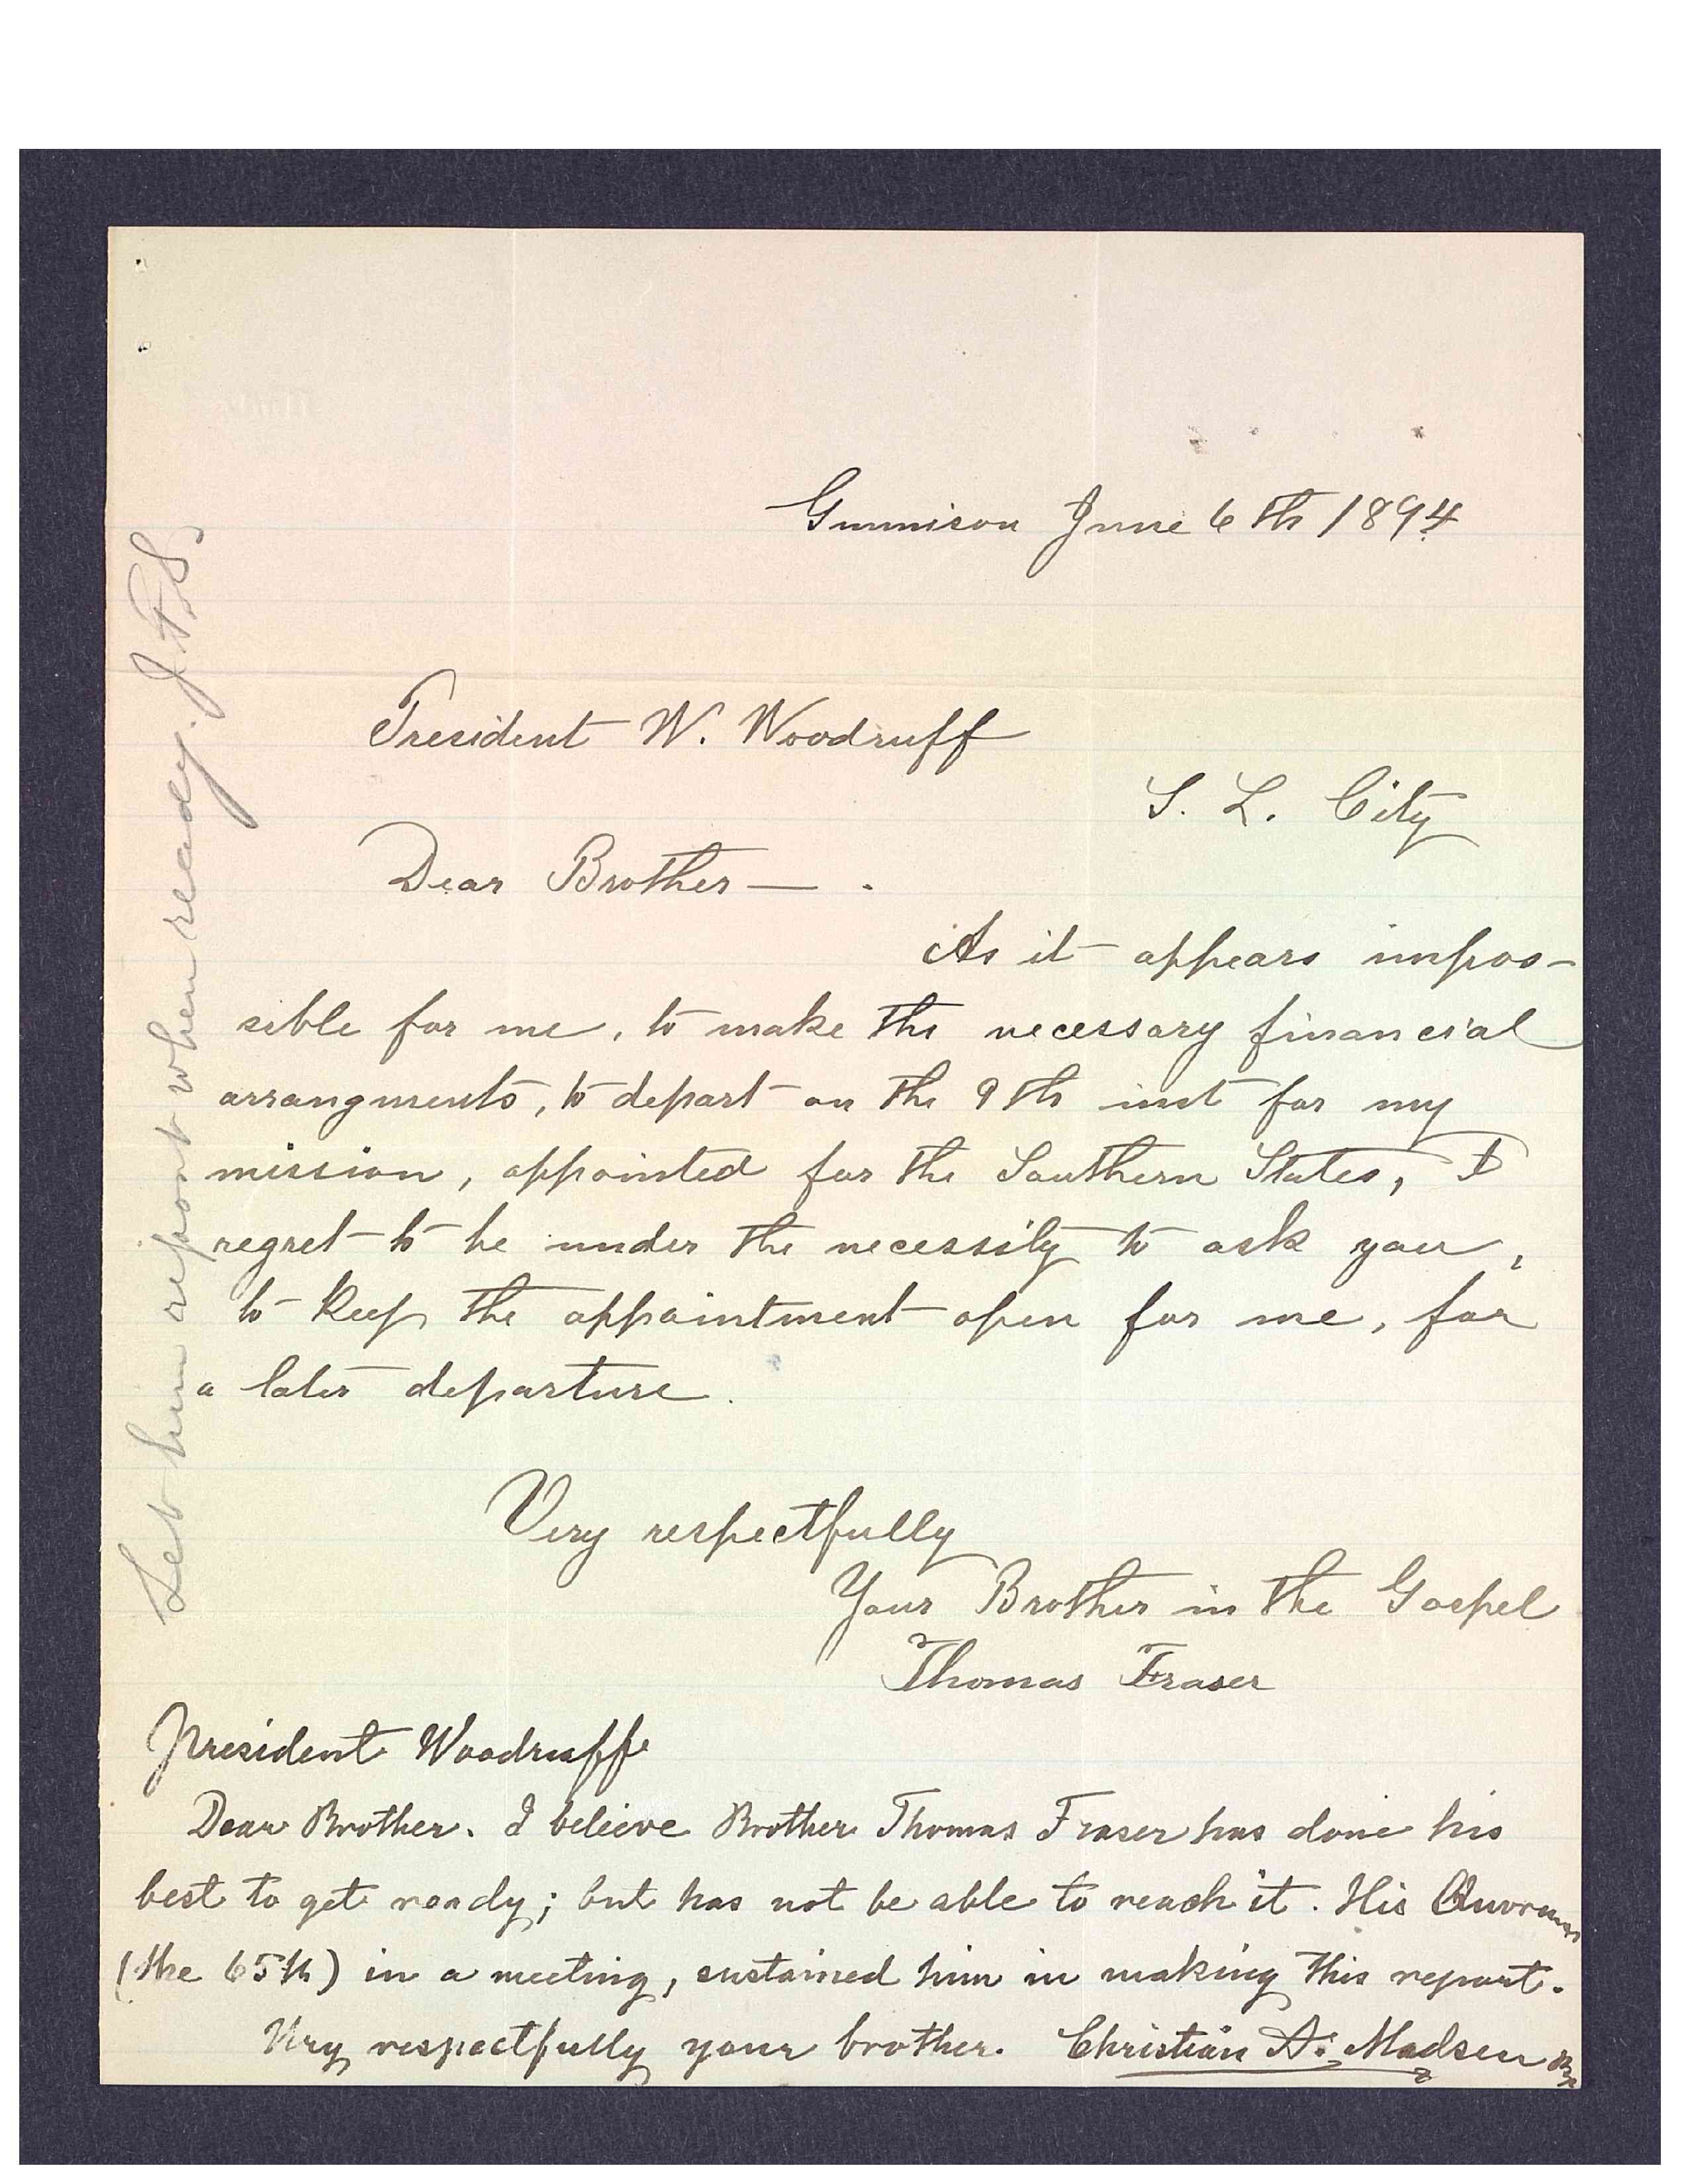 Gunnison June 6th 1894
President W. Woodruff
S. L. City
Dear Brother — .
As it appears impos-
sible for me, to make the necessary financial
arrangments, to depart on the 9th inst for my
mission, appointed for the Southern States, I
regret to be under the necessity to ask you,
to keep the appointment open for me, for
a later departure.
Very respectfully
Your Brother in the Gospel
Thomas Fraser
President Woodruff
Dear Brother. I believe Brother Thomas Fraser has done his
best to get ready; but has not be able to reach it. His Quorum
(the 65th) in a meeting, sustained him in making this report.
Very respectfully your brother. Christian A. Madsen Bp
Let him report when ready. J. F. S.